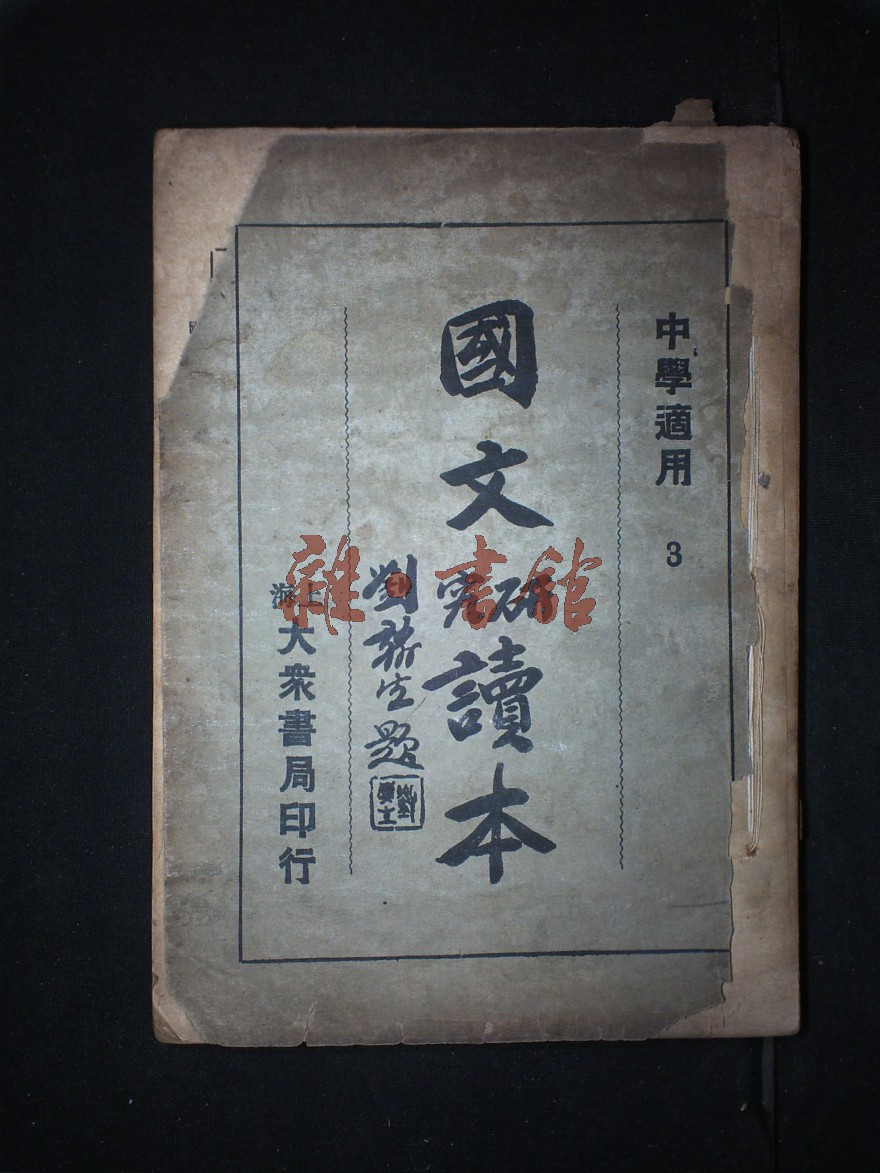 中學適用 3
國文研究讀本
劉麟生題
上海
大衆書局印行
雜·書館